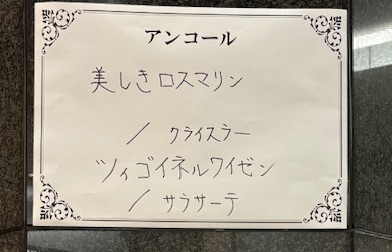 アンコール
美しきロスマリン
／ クライスラー
ツィゴイネルワイゼン
／ サラサーテ